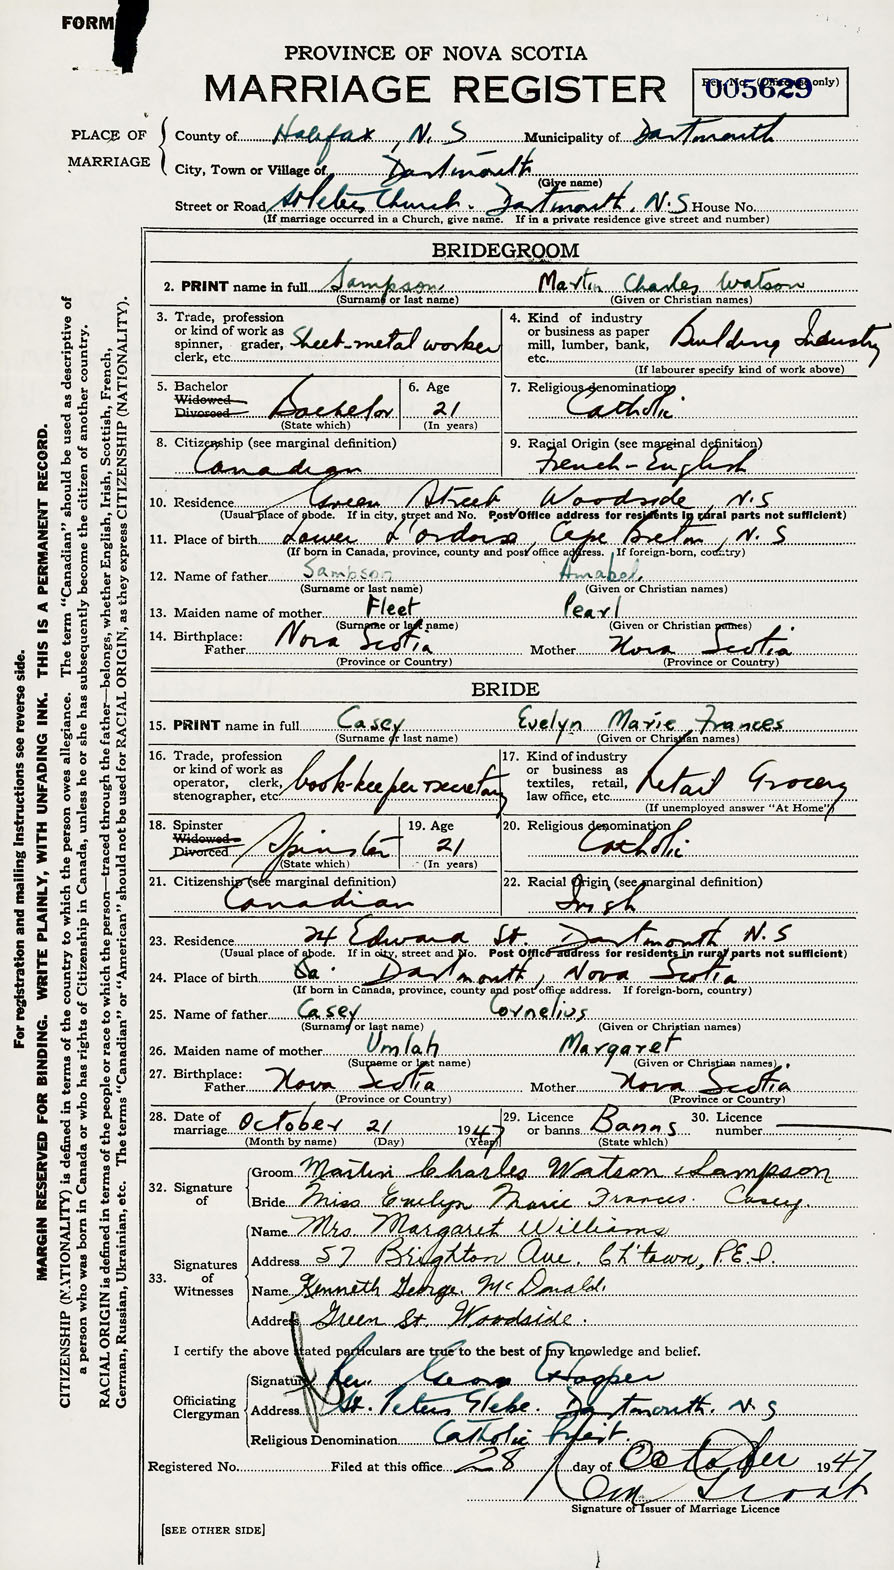 FORM
PROVINCE OF NOVA SCOTIA
MARRIAGE REGISTER
Reg. No. (Office use only)
005629
PLACE OF MARRIAGE
County of Halifax, N.S Municipality of Dartmouth
City, Town or Village of Dartmouth
(Give name)
Street or Road St Peters Church. Dartmouth, N.S House No.
(If marriage occurred in a Church, give name. If in a private residence give street and number)
BRIDEGROOM
2. PRINT name in full Sampson Martin Charles Watson
(Surname or last name) (Given or Christian names)
3. Trade, profession or kind of work as spinner, grader, clerk, etc. Sheet-metal worker
4. Kind of industry or business as paper mill, lumber, bank, etc. Building Industry
(If labourer specify kind of work above)
5. Bachelor Widowed Divorced Bachelor
(State which)
6. Age 21
(In years)
7. Religious denomination Catholic
8. Citizenship (see marginal definition)
Canadian
9. Racial Origin (see marginal definition)
French-English
10. Residence Green Street Woodside, N.S
(Usual place of abode. If in city, street and No. Post Office address for residents in rural parts not sufficient)
11. Place of birth Lower L'ardoise, Cape Breton, N.S
(If born in Canada, province, county and post office address. If foreign-born, country)
12. Name of father Sampson Amabel
(Surname or last name) (Given or Christian names)
13. Maiden name of mother Fleet Pearl
(Surname or last name) (Given or Christian names)
14. Birthplace: Father Nova Scotia Mother Nova Scotia
(Province or Country) (Province or Country)
BRIDE
15. PRINT name in full Casey Evelyn Marie Frances
(Surname or last name) (Given or Christian names)
16. Trade, profession or kind of work as operator, clerk, stenographer, etc. book-keeper & secretary
17. Kind of industry or business as textiles, retail, law office, etc. Retail Grocery
(If unemployed answer "At Home")
18. Spinster Widowed Divorced Spinster
(State which)
19. Age 21
(In years)
20. Religious denomination Catholic
21. Citizenship (see marginal definition)
Canadian
22. Racial Origin (see marginal definition)
Irish
23. Residence 24 Edward St. Dartmouth N.S
(Usual place of abode. If in city, street and No. Post Office address for residents in rural parts not sufficient)
24. Place of birth Dartmouth, Nova Scotia
(If born in Canada, province, county and post office address. If foreign-born, country)
25. Name of father Casey Cornelius
(Surname or last name) (Given or Christian names)
26. Maiden name of mother Umlah Margaret
(Surname or last name) (Given or Christian names)
27. Birthplace: Father Nova Scotia Mother Nova Scotia
(Province or Country) (Province or Country)
28. Date of marriage October 21 1947
(Month by name) (Day) (Year)
29. Licence or banns Banns
(State which)
30. Licence number
32. Signature of
Groom Martin Charles Watson Sampson
Bride Miss Evelyn Marie Frances. Casey.
33. Signatures of Witnesses
Name Mrs. Margaret Williams
Address 57 Brighton Ave. Ch'town, P.E.I.
Name Kenneth George McDonald.
Address Green St. Woodside.
I certify the above stated particulars are true to the best of my knowledge and belief.
Officiating Clergyman
Signature Rev.
Address St. Peters Glebe. Dartmouth. N S
Religious Denomination Catholic Priest.
Registered No. Filed at this office 28 day of October 1947
Signature of Issuer of Marriage Licence
[SEE OTHER SIDE]
For registration and mailing instructions see reverse side.
MARGIN RESERVED FOR BINDING. WRITE PLAINLY, WITH UNFADING INK. THIS IS A PERMANENT RECORD.
CITIZENSHIP (NATIONALITY) is defined in terms of the country to which the person owes allegiance. The term "Canadian" should be used as descriptive of
a person who was born in Canada or who has rights of Citizenship in Canada, unless he or she has subsequently become the citizen of another country.
RACIAL ORIGIN is defined in terms of the people or race to which the person—traced through the father—belongs, whether English, Irish, Scottish, French,
German, Russian, Ukrainian, etc. The terms "Canadian" or "American" should not be used for RACIAL ORIGIN, as they express CITIZENSHIP (NATIONALITY).